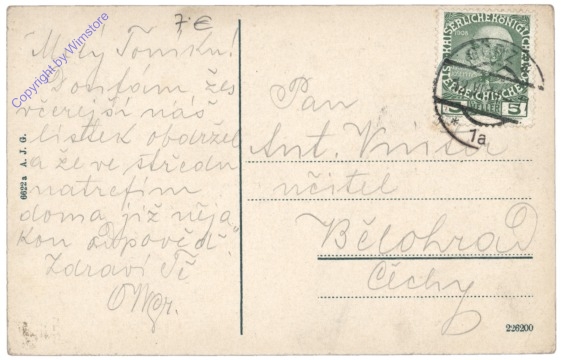 7.€
Milý Toníku!
Doufám žes
včerejší náš
lístek obdržel
a že ve středu
natrefím
doma již něja
kou odpověď.
Zdraví Tě
Pan
Ant.
učitel
Bělohrad
Čechy
KAISERLICHE KÖNIGLICHE
ÖSTERREICHISCHE
1908
5
1a
6622a A. J. G.
226200
Copyright by Wimstore